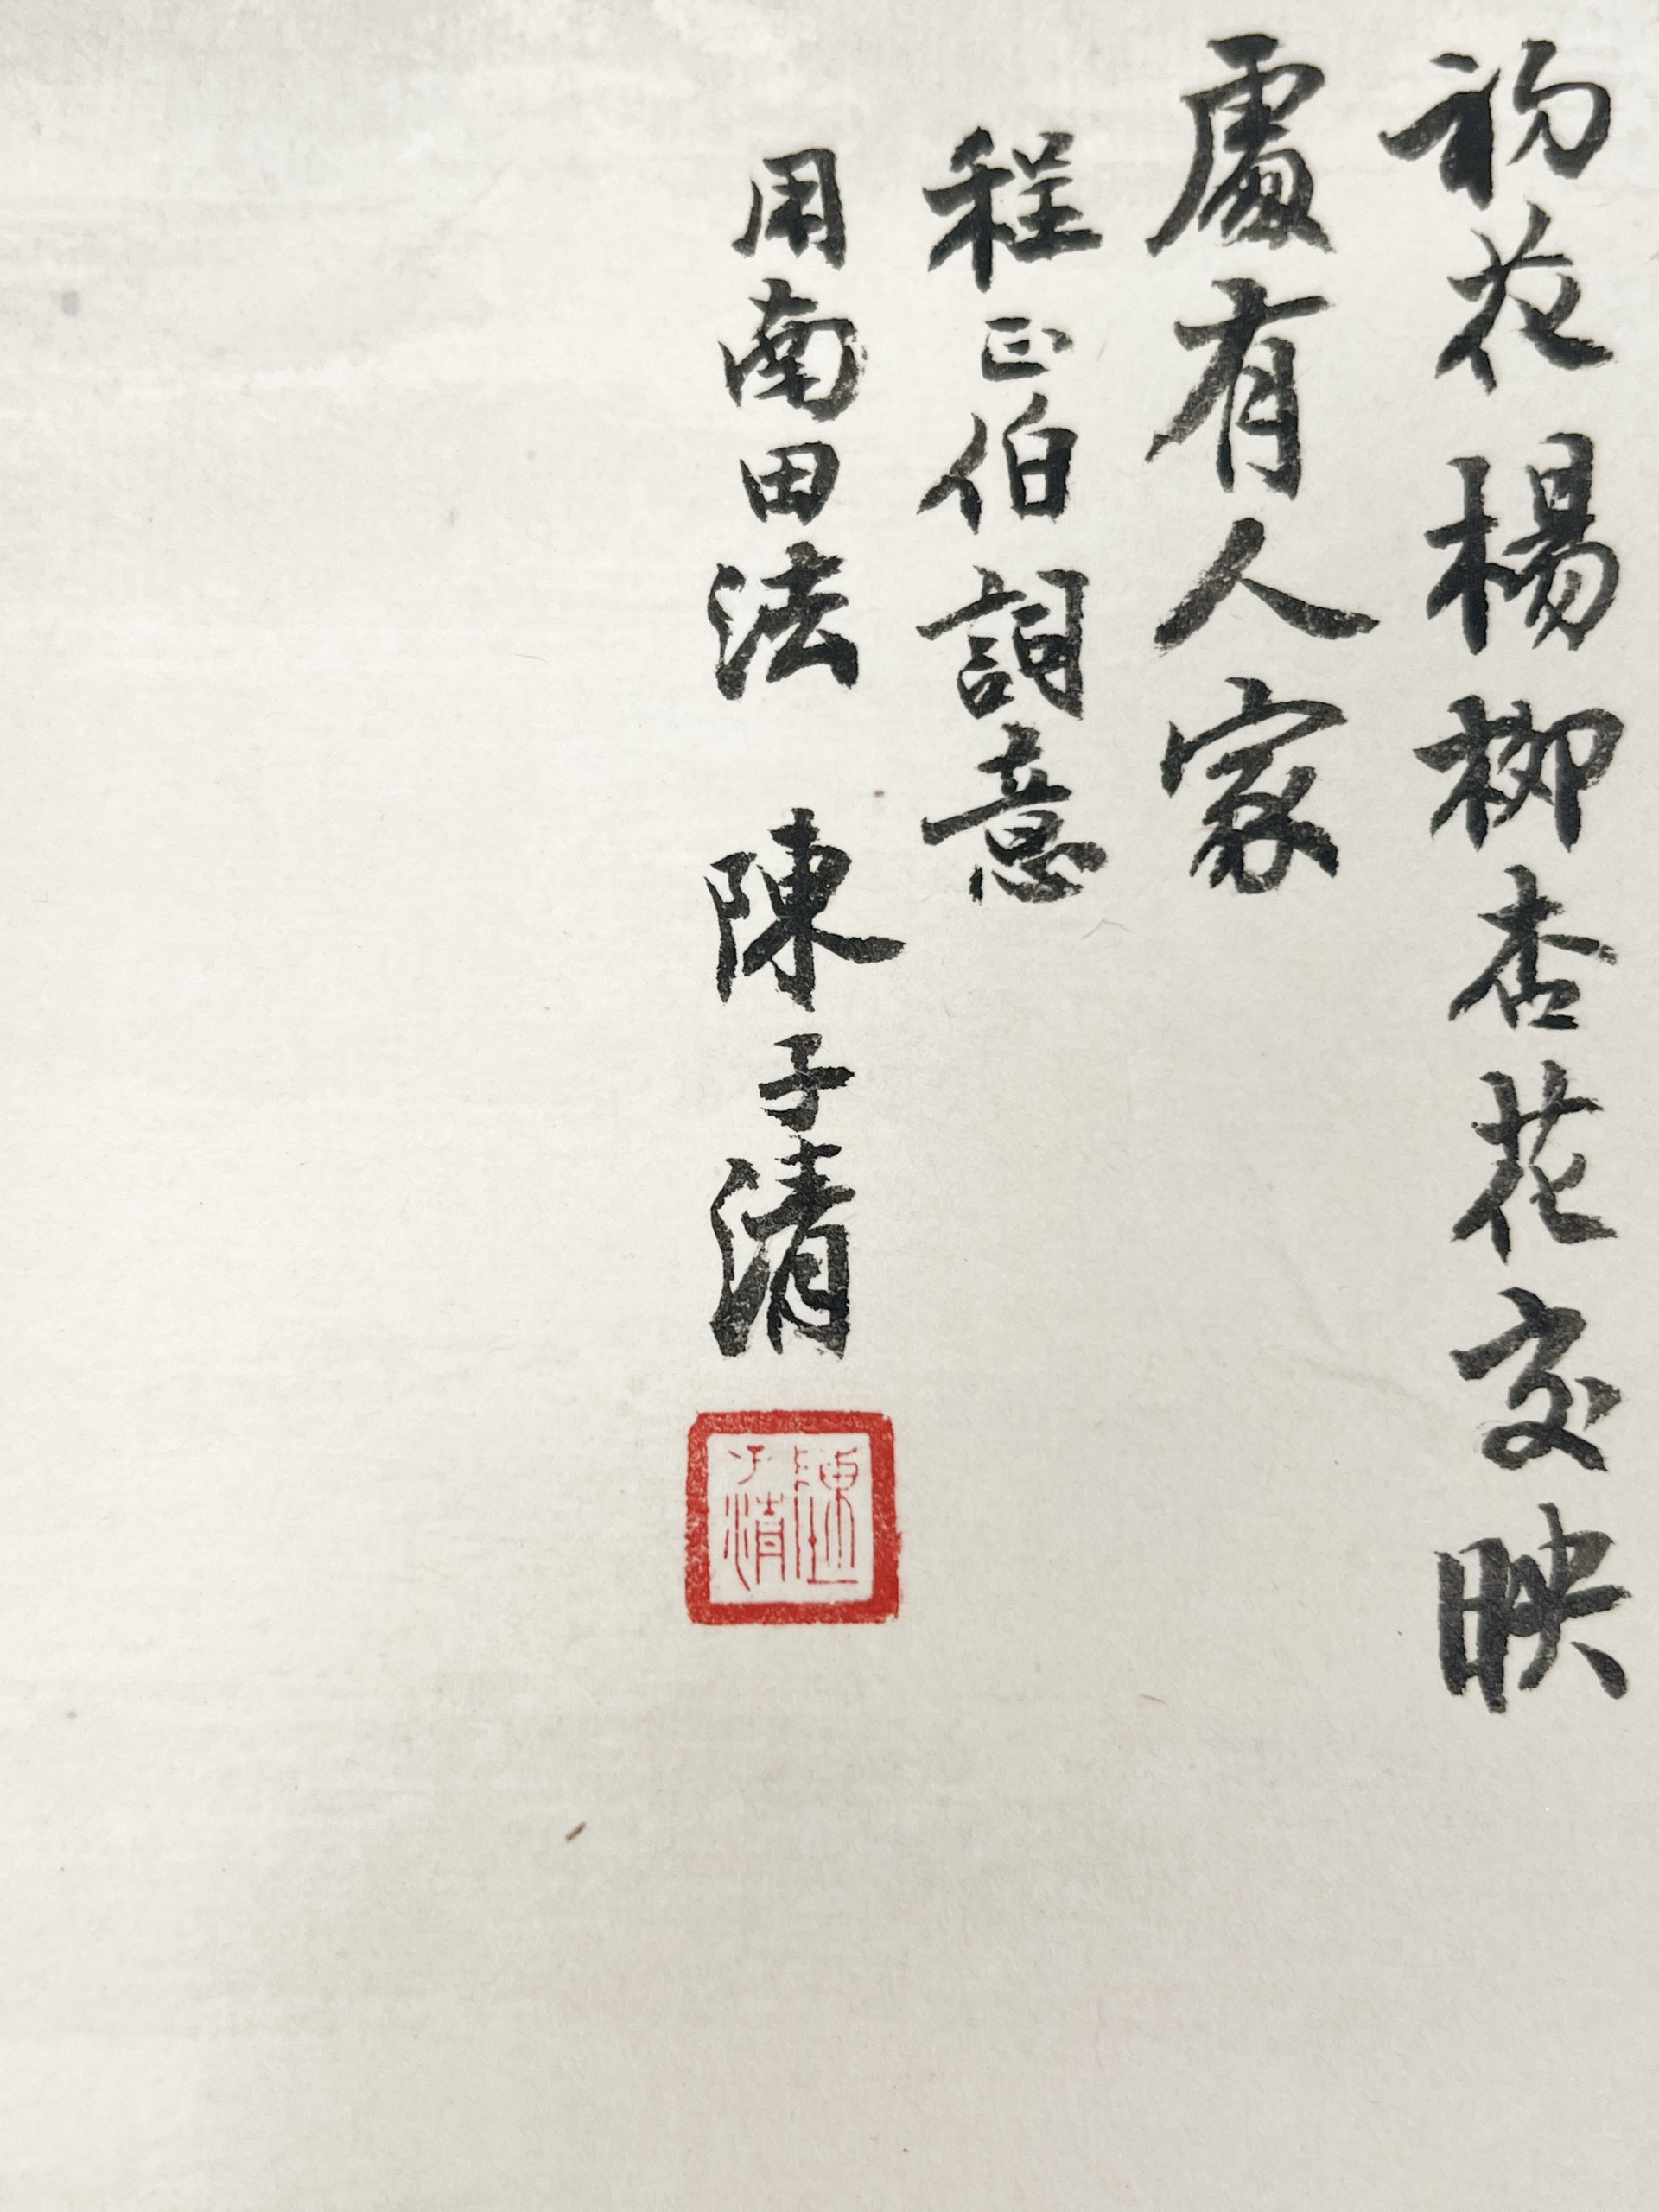 初花楊柳杏花交映
處有人家
程正伯詞意
用南田法 陳子清
陳子清